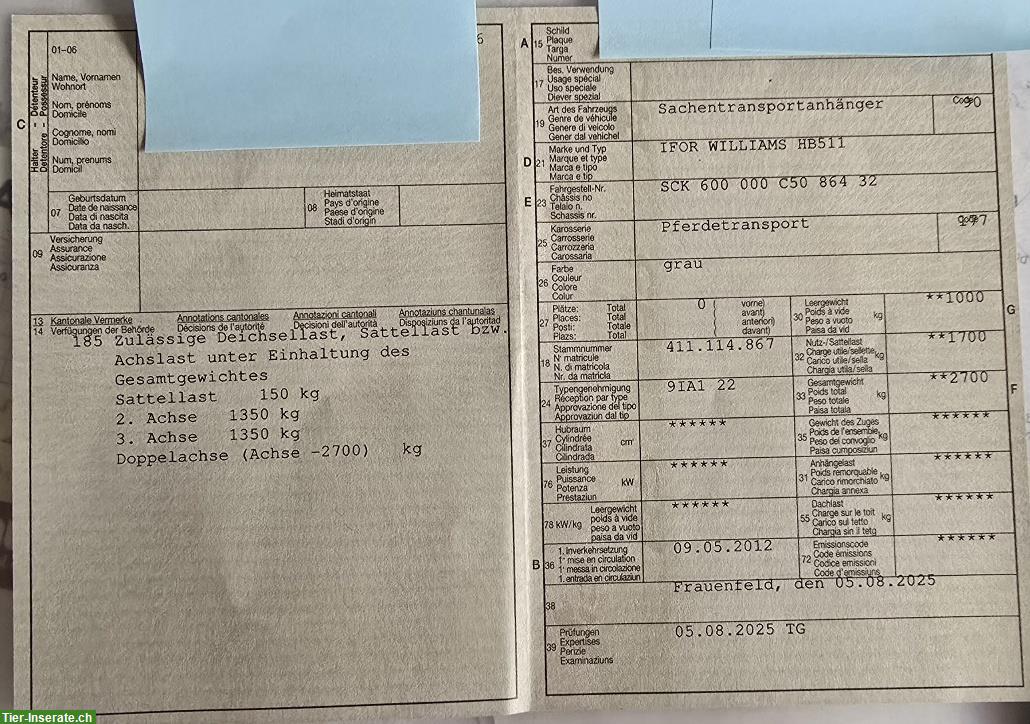 01-06
C
Halter - Détenteur
Detentore - Possessur
Name, Vornamen
Wohnort
Nom, prénoms
Domicile
Cognome, nomi
Domicilio
Num, prenums
Domicil
07
Geburtsdatum
Date de naissance
Data di nascita
Data da nasch.
08
Heimatstaat
Pays d'origine
Paese d'origine
Stadi d'origin
09
Versicherung
Assurance
Assicurazione
Assicuranza
13 Kantonale Vermerke
Annotations cantonales
Annotazioni cantonali
Annotaziuns chantunalas
14 Verfügungen der Behörde
Décisions de l'autorité
Decisioni dell'autorità
Disposiziuns da l'autoritad
185 Zulässige Deichsellast, Sattellast bzw.
Achslast unter Einhaltung des
Gesamtgewichtes
Sattellast 150 kg
2. Achse 1350 kg
3. Achse 1350 kg
Doppelachse (Achse -2700) kg
A
15
Schild
Plaque
Targa
Numer
17
Bes. Verwendung
Usage spécial
Uso speciale
Diever spezial
19
Art des Fahrzeugs
Genre de véhicule
Genere di veicolo
Gener dal vehichel
Sachentransportanhänger
D
21
Marke und Typ
Marque et type
Marca e tipo
Marca e tip
IFOR WILLIAMS HB511
E
23
Fahrgestell-Nr.
Châssis no
Telaio n.
Schassis nr.
SCK 600 000 C50 864 32
25
Karosserie
Carrosserie
Carrozzeria
Carossaria
Pferdetransport
26
Farbe
Couleur
Colore
Colur
grau
27
Plätze: Total
Places: Total
Posti: Totale
Plazs: Total
0
( vorne)
( avant)
( anteriori)
( davant)
30
Leergewicht
Poids à vide
Peso a vuoto
Paisa da vid
kg
**1000
G
18
Stammnummer
N° matricule
N. di matricola
Nr. da matricla
411.114.867
32
Nutz-/Sattellast
Charge utile/sellette
Carico utile/sella
Chargia utila/sella
kg
**1700
24
Typengenehmigung
Réception par type
Approvazione del tipo
Approvaziun dal tip
9IA1 22
33
Gesamtgewicht
Poids total
Peso totale
Paisa totala
kg
**2700
F
37
Hubraum
Cylindrée
Cilindrata
Cilindrada
cm³
******
35
Gewicht des Zuges
Poids de l'ensemble
Peso del convoglio
Paisa cumposiziun
kg
******
76
Leistung
Puissance
Potenza
Prestaziun
kW
******
31
Anhängelast
Poids remorquable
Carico rimorchiato
Chargia annexa
kg
******
78 kW/kg
Leergewicht
poids à vide
peso a vuoto
paisa da vid
******
55
Dachlast
Charge sur le toit
Carico sul tetto
Chargia sin il tetg
kg
******
B
36
1. Inverkehrsetzung
1re mise en circulation
1a messa in circolazione
1. entrada en circulaziun
09.05.2012
72
Emissionscode
Code émissions
Codice emissioni
Code d'emissiuns
******
38
Frauenfeld, den 05.08.2025
39
Prüfungen
Expertises
Perizie
Examinaziuns
05.08.2025 TG
Tier-Inserate.ch